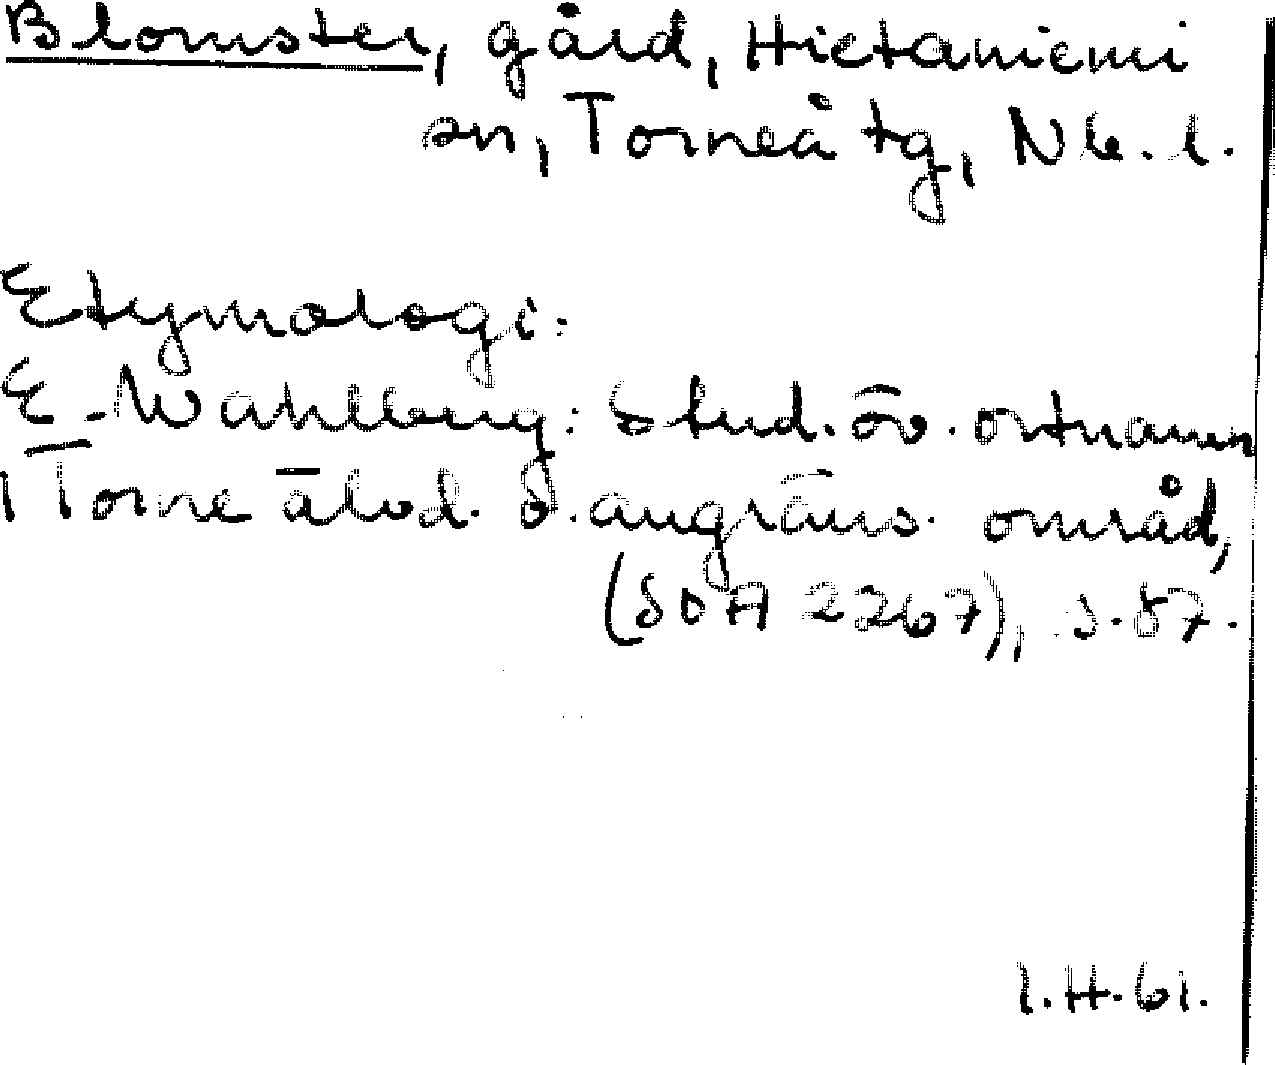 Blomster, gård, Hietaniemi
sn, Torneå tg, Nb. l.
Etymologi:
E. Wahlberg: Stud. öv. ortnamn
i Torne älvd. o. angräns. områd,
(SOA 2267), s. 87.
I.H. 61.